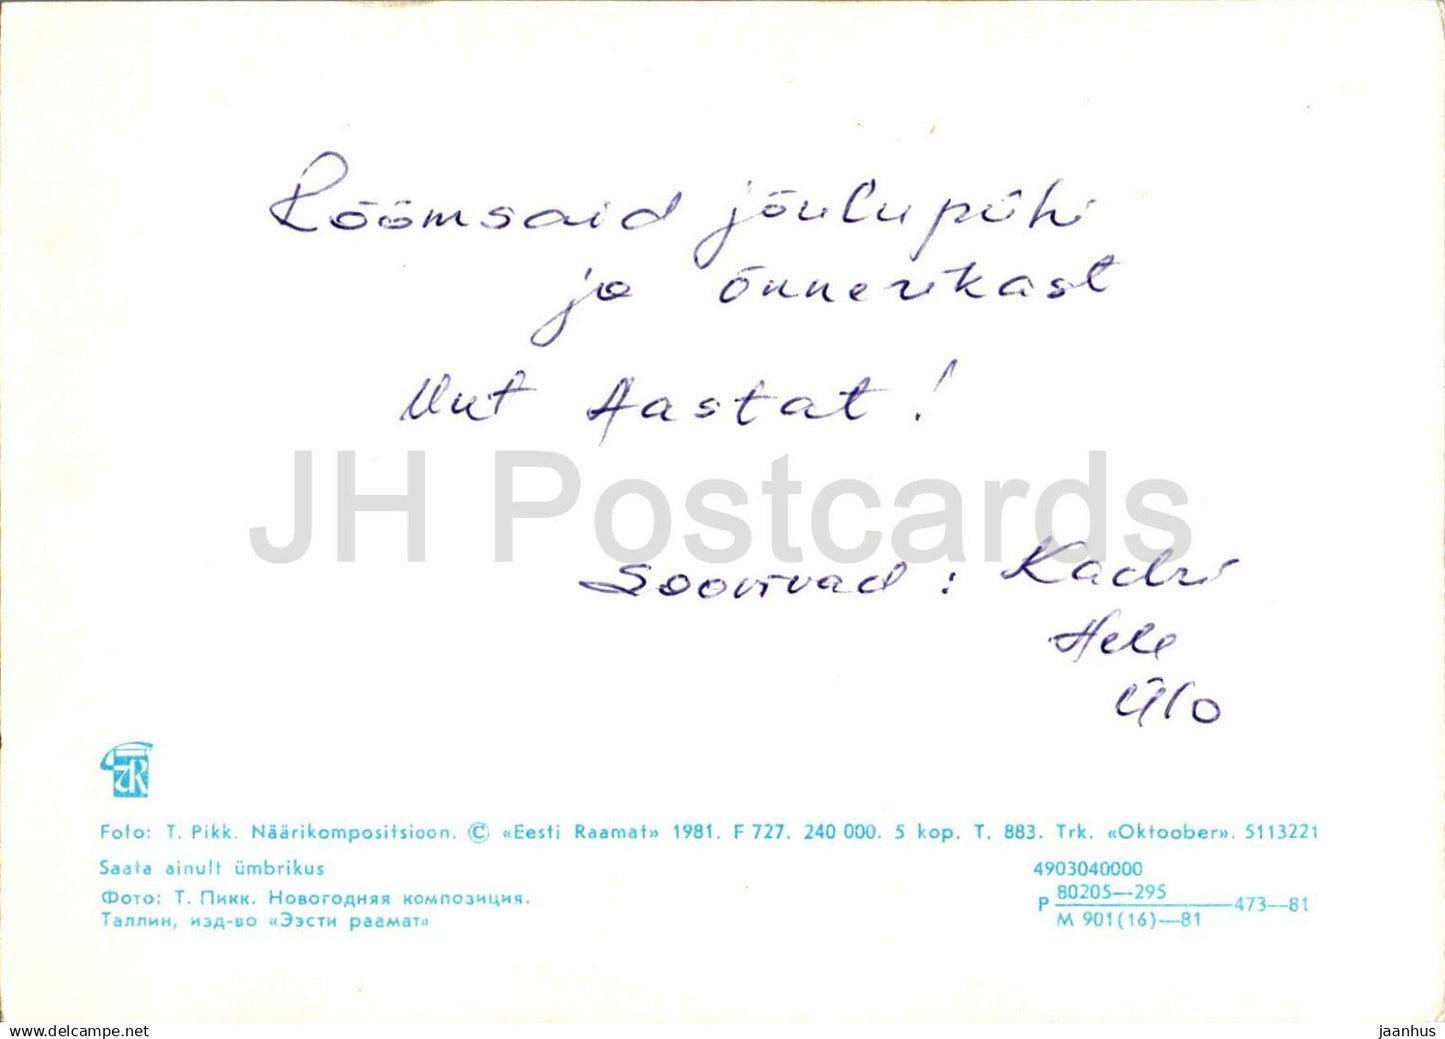 Rõõmsaid jõulupühi
ja õnnerikast
Uut Aastat!
JH Postcards
Soovivad: Kadri
Hele
Ülo
Foto: T. Pikk. Näärikompositsioon. © «Eesti Raamat» 1981. F 727. 240 000. 5 kop. T. 883. Trk. «Oktoober». 5113221
Saata ainult ümbrikus
Фото: Т. Пикк. Новогодняя композиция.
Таллин, изд-во «Ээсти раамат»
4903040000
Р 80205—295 473—81
М 901(16)—81
www.delcampe.net
jaanhus